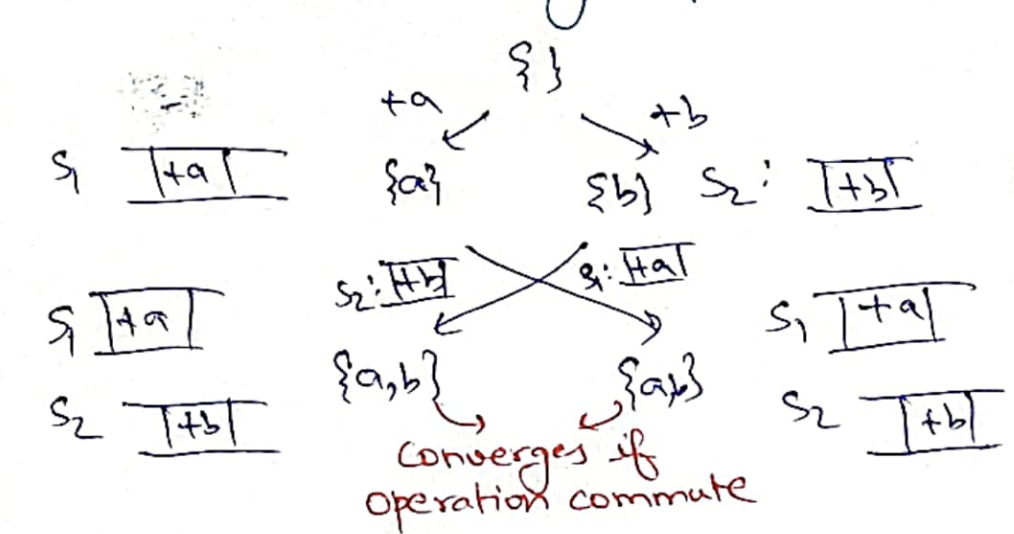 { }
+a
+b
S1 +a
{a}
{b}
S2: +b
S2: +b
S1: +a
S1 +a
S1 +a
{a,b}
{a,b}
S2 +b
S2 +b
Converges if
operation commute